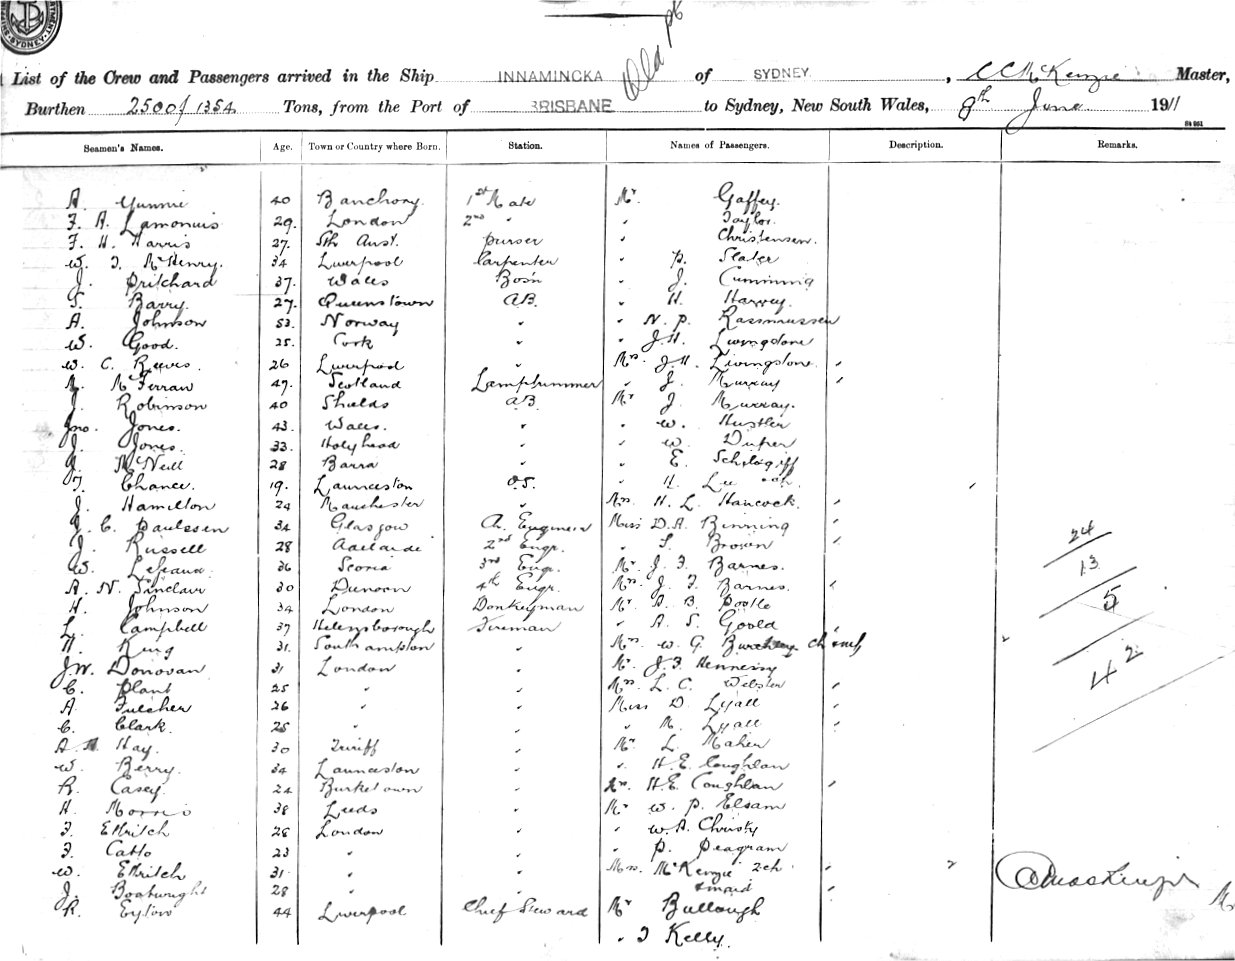 SYDNEY
Qld pt
List of the Crew and Passengers arrived in the Ship INNAMINCKA of SYDNEY, C C McKenzie Master,
Burthen 2500/1354 Tons, from the Port of BRISBANE to Sydney, New South Wales, 8th June 1911
Seamen's Names. Age. Town or Country where Born. Station. Names of Passengers. Description. Remarks.
A. 40 Banchory. 1st Mate Mr. Gaffey.
F. A. 29. London 2nd " " Taylor.
F. H. Harris 27. Sth Aust. purser " Christensen.
W. J. McHenry. 34 Liverpool Carpenter " P. Slater
J. Pritchard 37. Wales Bosn " J. Cumming
S. Barry. 27. Queenstown AB. " H. Harvey.
A. Johnson 53. Norway " " N. P. Rasmussen
W. Good. 25. Cork " " J.H. Livingstone
W. C. Reeves. 26 Liverpool " Mrs. J.H. Livingstone. "
McFerran 47. Scotland Lamptrimmer " J. Murray "
J. Robinson 40 Shields AB. Mr J. Murray.
Jno. Jones. 43. Wales. " " W. Hustler
J. Jones. 33. Holyhead " " W. Duper
McNeill 28 Barra " " E.
Chance. 19. Launceston O.S. " H.
J. Hamilton 24 Manchester " Mrs. H. L. Hancock. "
C. Paulssen 34 Glasgow Ch. Engineer Miss D.A. Binning "
J. Russell 28 Adelaide 2nd Engr. " Brown "
W. 36 Scoria 3rd Engr. Mr. J. F. Barnes.
A. N. Sinclair 30 Dunoon 4th Engr. Mrs. J. F. Barnes. "
H. Johnson 34 London Donkeyman Mr. A. B. Poole
L. Campbell 37 Helensborough Fireman " A. S. Goold
H. King 31. Southampton " Mrs. W. G. "
J.W. Donovan 31 London " Mr. J.F. Hennessy
C. Plant 25 " " Mrs. L. C. Webster "
A Fulcher 26 " " Miss D. Lyall "
C. Clark. 25 " " " Lyall "
A Hay. 30 Turiff " Mr. L. Maher
W. Berry. 34 Launceston " " H.E. Coughlan
R. Casey. 24 Burketown " Mrs. H.E. Coughlan "
H. Morris 38 Leeds " Mr W. P. Elsam
F. Ettritch 28 London " " W.A. Christy
F. Catto 23 " " " P. Peagram
W. Ettritch 31 " " Mrs. McKenzie 2ch "
& maid "
J. Boatwright 28 " "
R. 44 Liverpool Chief Steward Mr Bullough
" J Kelly.
24
13
5
42